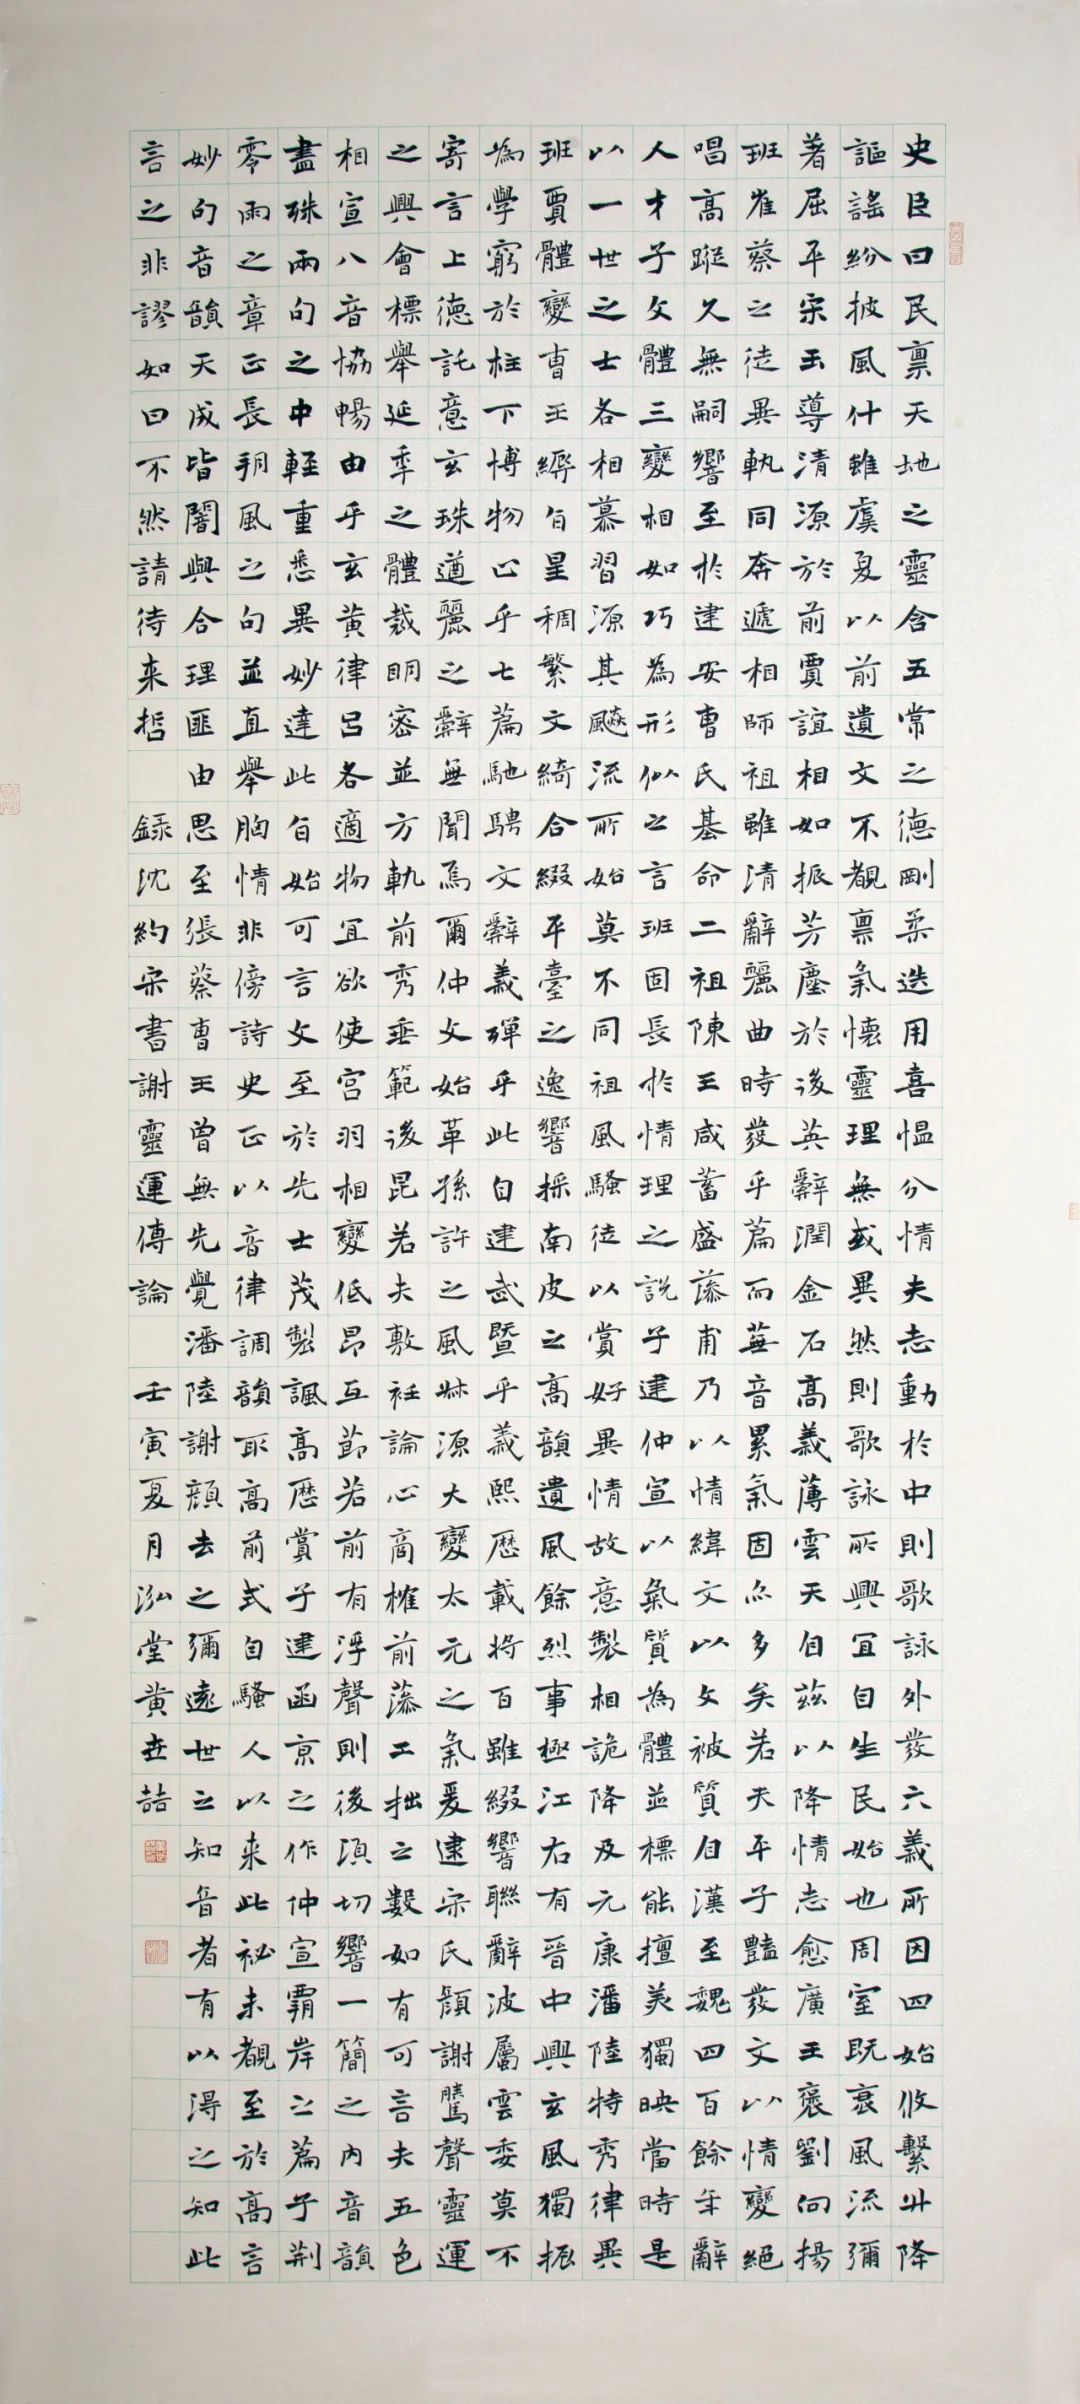 史臣曰民禀天地之靈含五常之德剛柔迭用喜愠分情夫志動於中則歌詠外發六義所因四始攸繫升降
謳謠紛披風什雖虞夏以前遺文不覩禀氣懷靈理無或異然則歌詠所興宜自生民始也周室既衰風流彌
著屈平宋玉導清源於前賈誼相如振芳塵於後英辭潤金石高義薄雲天自茲以降情志愈廣王褒劉向揚
班崔蔡之徒異軌同奔遞相師祖雖清辭麗曲時發乎篇而蕪音累氣固亦多矣若夫平子豔發文以情變絕
唱高蹤久無嗣響至於建安曹氏基命二祖陳王咸蓄盛藻甫乃以情緯文以文被質自漢至魏四百餘年辭
人才子文體三變相如巧為形似之言班固長於情理之說子建仲宣以氣質為體並標能擅美獨映當時是
以一世之士各相慕習源其飈流所始莫不同祖風騷徒以賞好異情故意製相詭降及元康潘陸特秀律異
班賈體變曹王縟旨星稠繁文綺合綴平臺之逸響採南皮之高韻遺風餘烈事極江右有晉中興玄風獨振
為學窮於柱下博物止乎七篇馳騁文辭義殫乎此自建武暨乎義熙歷載將百雖綴響聯辭波屬雲委莫不
寄言上德託意玄珠遒麗之辭無聞焉爾仲文始革孫許之風叔源大變太元之氣爰逮宋氏顏謝騰聲靈運
之興會標舉延年之體裁明密並方軌前秀垂範後昆若夫敷衽論心商榷前藻工拙之數如有可言夫五色
相宣八音協暢由乎玄黃律呂各適物宜欲使宮羽相變低昂互節若前有浮聲則後須切響一簡之內音韻
盡殊兩句之中輕重悉異妙達此旨始可言文至於先士茂製諷高歷賞子建函京之作仲宣霸岸之篇子荊
零雨之章正長朔風之句並直舉胸情非傍詩史正以音律調韻取高前式自騷人以來此祕未覩至於高言
妙句音韻天成皆闇與合理匪由思至張蔡曹王曾無先覺潘陸謝顏去之彌遠世之知音者有以得之知此
言之非謬如曰不然請待來哲 錄沈約宋書謝靈運傳論 壬寅夏月泓堂黃世喆